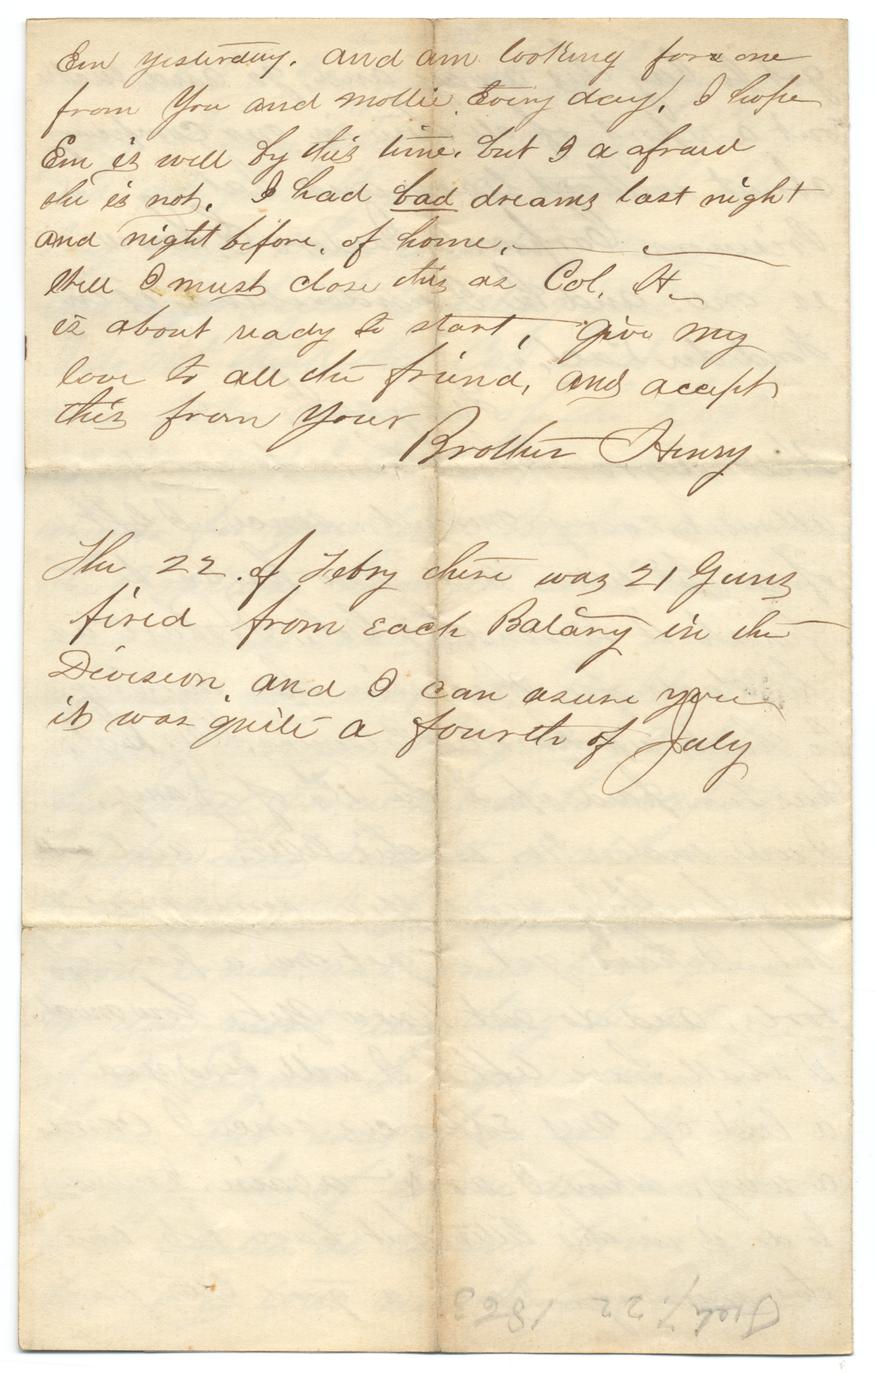 Em yesterday. and am looking for one
from You and Mollie Every day, I hope
Em is well by this time. but I a afraid
she is not. I had bad dreams last night
and night before, of home,
Well I must close this as Col. H.
is about ready to start, Give my
love to all the friend, and accept
this from Your
Brother Henry
The 22. of Febry there was 21 Guns
fired from each Batary in the
Division, and I can asure you
it was quite a fourth of July
Feby. 22 1863